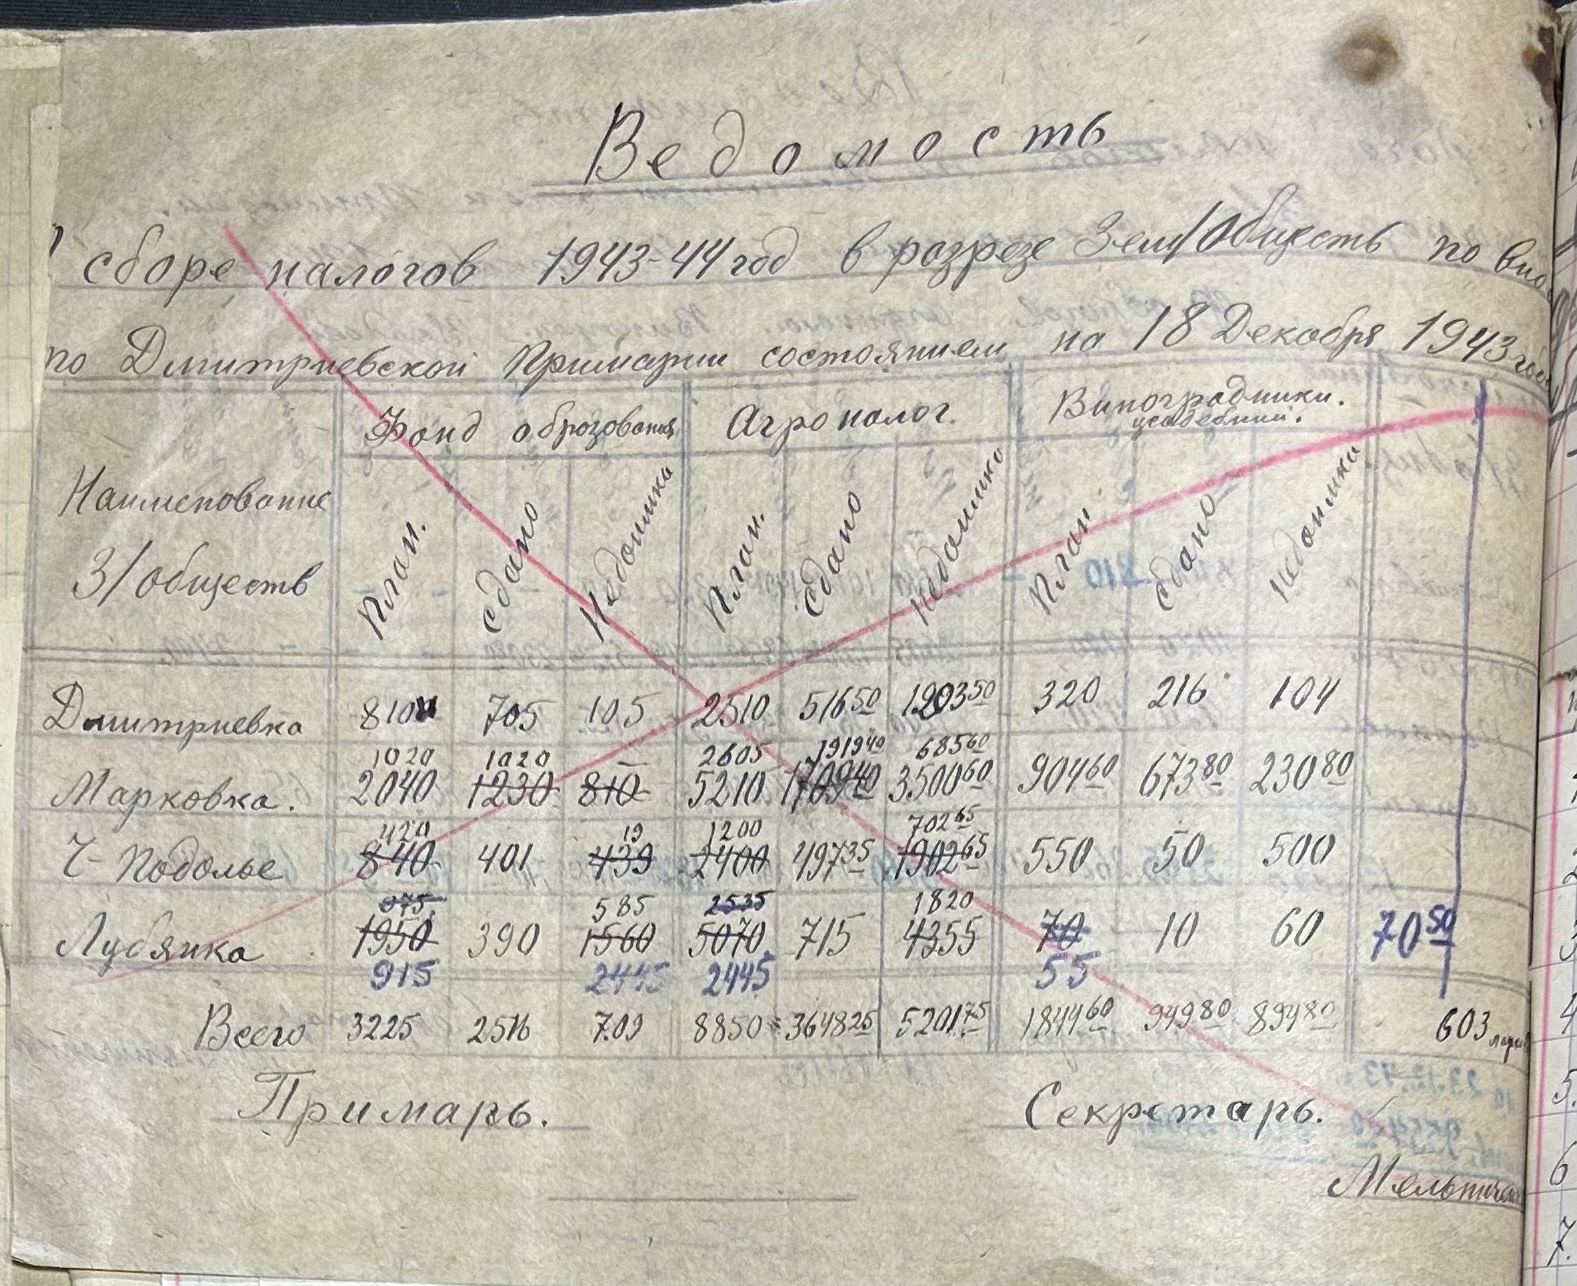 Ведомость
сборе налогов 1943-44 год в разрезе Зем/Обществ по
по Дмитриевской Примарии состоянием на 18 Декабря 1943
Наименование З/обществ
Фонд образования Агроналог. Виноградники. усадебний.
План. сдано Недоимка План. сдано недоимка План сдано недоимка
Дмитриевка 810 705 105 2510 516 50 1993 50 320 216 104
1020 1020 — 2605 1919 40 685 60
Марковка. 2040 1230 810 5210 1709 40 3500 60 904 60 673 80 230 80
420 19 1200 702 65
Ч-Подолье 840 401 439 2400 497 35 1902 65 550 50 500
975 585 2535 1820
Лубянка 1950 390 1560 5070 715 4355 70 10 60 70 50
915 2445 2445 55
Всего 3225 2516 709 8850 3648 25 5201 75 1844 60 949 80 894 80 603
Примарь. Секретарь.